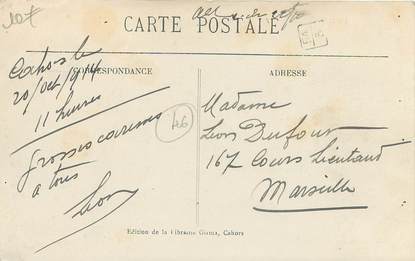 CARTE POSTALE
CORRESPONDANCE
ADRESSE
Cahors le
20/Oct/1914
11 heures
Grosses caresses
a tous
Leon
46
Madame
Leon Dufour
167 Cours Lieutaud
Marseille
Edition de la Librairie Girma, Cahors